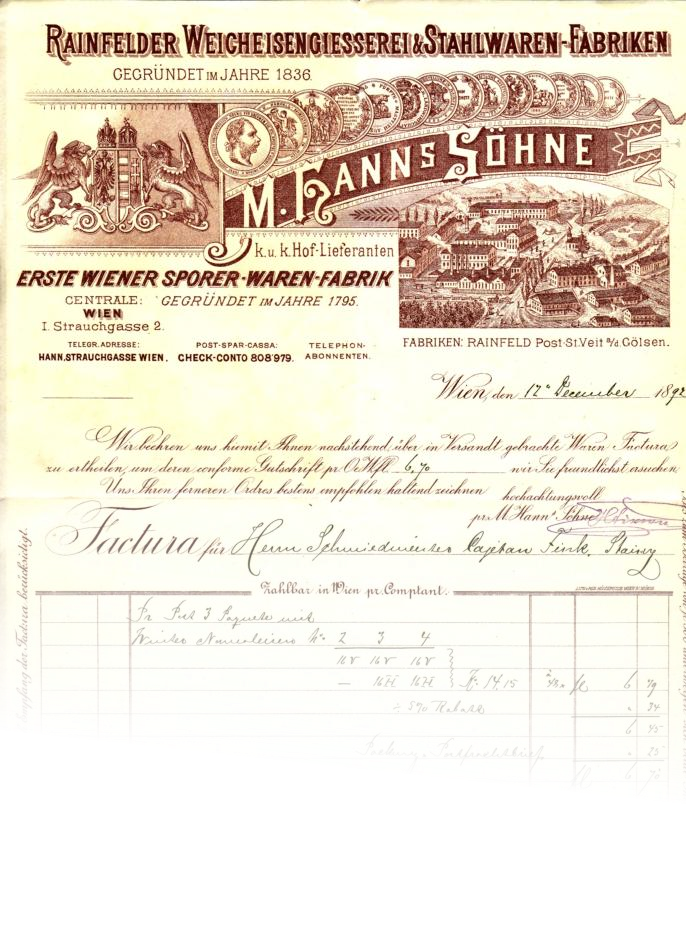 RAINFELDER WEICHEISENGIESSEREI & STAHLWAREN-FABRIKEN
GEGRÜNDET IM JAHRE 1836.
M. HANNS SÖHNE
k.u.k. Hof-Lieferanten
ERSTE WIENER SPORER-WAREN-FABRIK
CENTRALE: GEGRÜNDET IM JAHRE 1795.
WIEN
I. Strauchgasse 2.
TELEGR. ADRESSE: POST-SPAR-CASSA: TELEPHON-
HANN, STRAUCHGASSE WIEN. CHECK-CONTO 808'979. ABONNENTEN.
FABRIKEN: RAINFELD Post-St. Veit a/d. Gölsen.
Wien, den 12. December 1892
Wir beehren uns hiemit Ihnen nachstehend, über in Versandt gebrachte Waren Factura
zu ertheilen, um deren conforme Gutschrift pr. O. W. fl. 6,70 wir Sie freundlichst ersuchen.
Uns Ihren ferneren Ordres bestens empfohlen haltend zeichnen hochachtungsvoll
pr. M. Hann's Söhne
Factura für Herrn Schmiedmeister Cajetan Fink, Stainz
Zahlbar in Wien pr. Comptant.
Pr Post 3 Paquete mit
Winter No 2 3 4
16 V 16 V 16 V
— 16 H 16 H K. 14,15 fl 6 79
5% Rabatt " 34
6 45
" 25
fl 6 70
Empfang der Factura berücksichtigt.